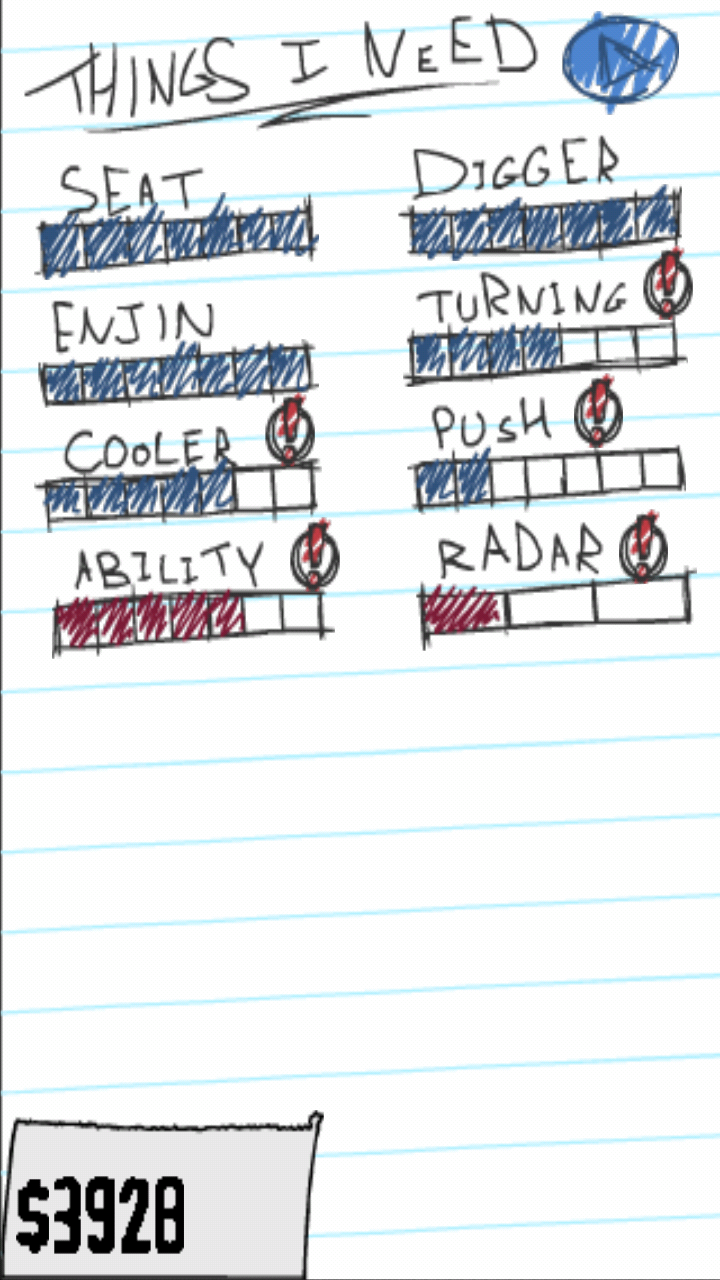 THINGS I NEED
SEAT
DIGGER
ENJIN
TURNING
COOLER
PUSH
ABILITY
RADAR
$3928